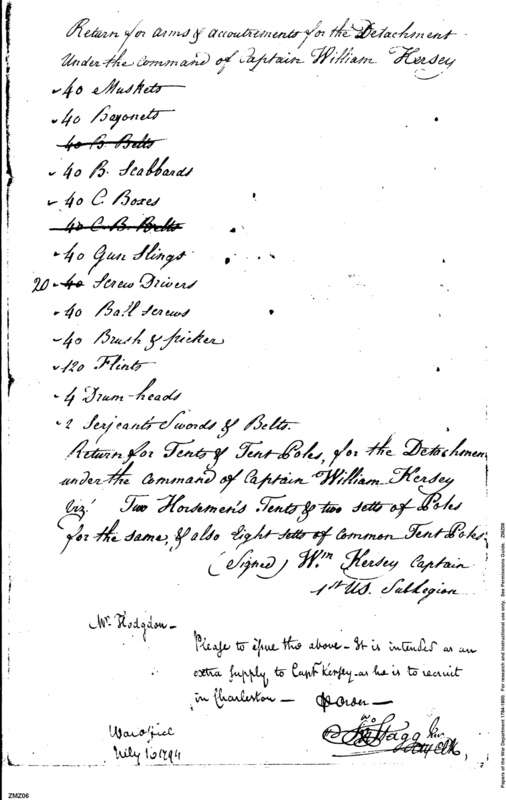 Return for arms & accoutrements for the Detachment
Under the command of Captain William Kersey
40 Muskets
40 Bayonets
40 B. Belts
40 B. Scabbards
40 C. Boxes
40 C. B. Belts
40 Gun Slings
20 40 Screw Drivers
40 Ball screws
40 Brush & picker
120 Flints
4 Drum-heads
2 Serjeants Swords & Belts.
Return for Tents & Tent Poles, for the Detachmen
under the command of Captain William Kersey
Viz. Two Horsemen's Tents & two setts of Poles
for the same, & also Eight setts of Common Tent Poles
(Signed) Wm Kersey Captain
1st US. SubLegion
Mr. Hodgdon—
Please to issue the above — It is intended as an
extra supply to Capt Kersey as he is to recruit
in Charleston — order —
Jno Stagg Jur
War office
July 1794
Papers of the War Department 1784-1800. For research and instructional use only. See Permissions Guide. ZMZ06
ZMZ06